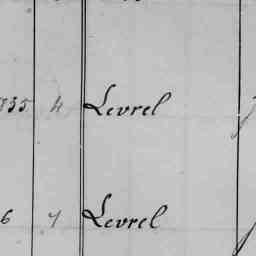 835 4 Levrel
6 7 Levrel